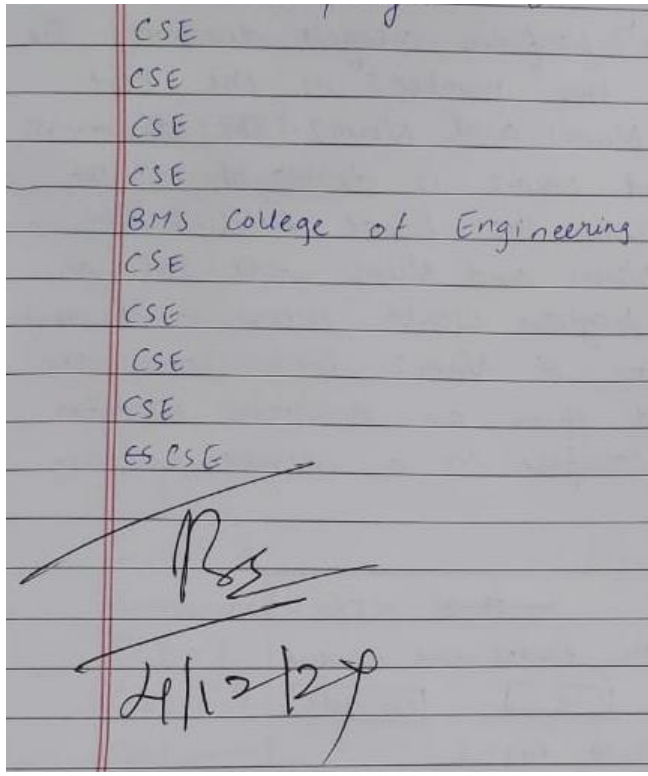 CSE
CSE
CSE
CSE
BMS College of Engineering
CSE
CSE
CSE
CSE
ES CSE
4/12/24